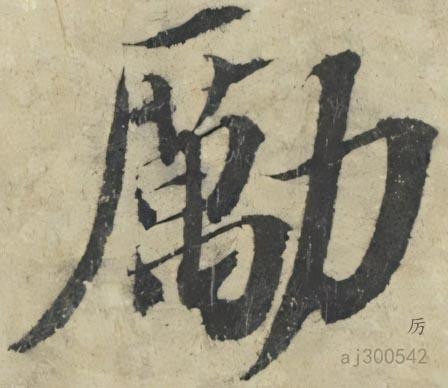 勵
厉
aj300542